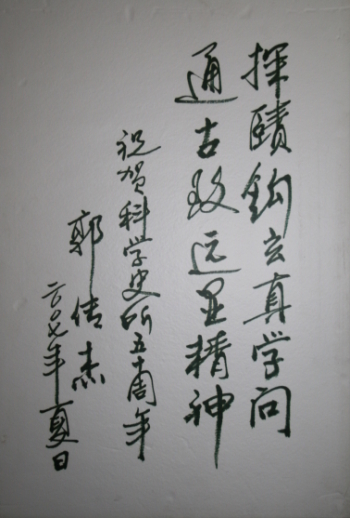 探赜钩玄真学问
通古致远显精神
祝贺科学史所五十周年
郭传杰
二〇〇七年夏日